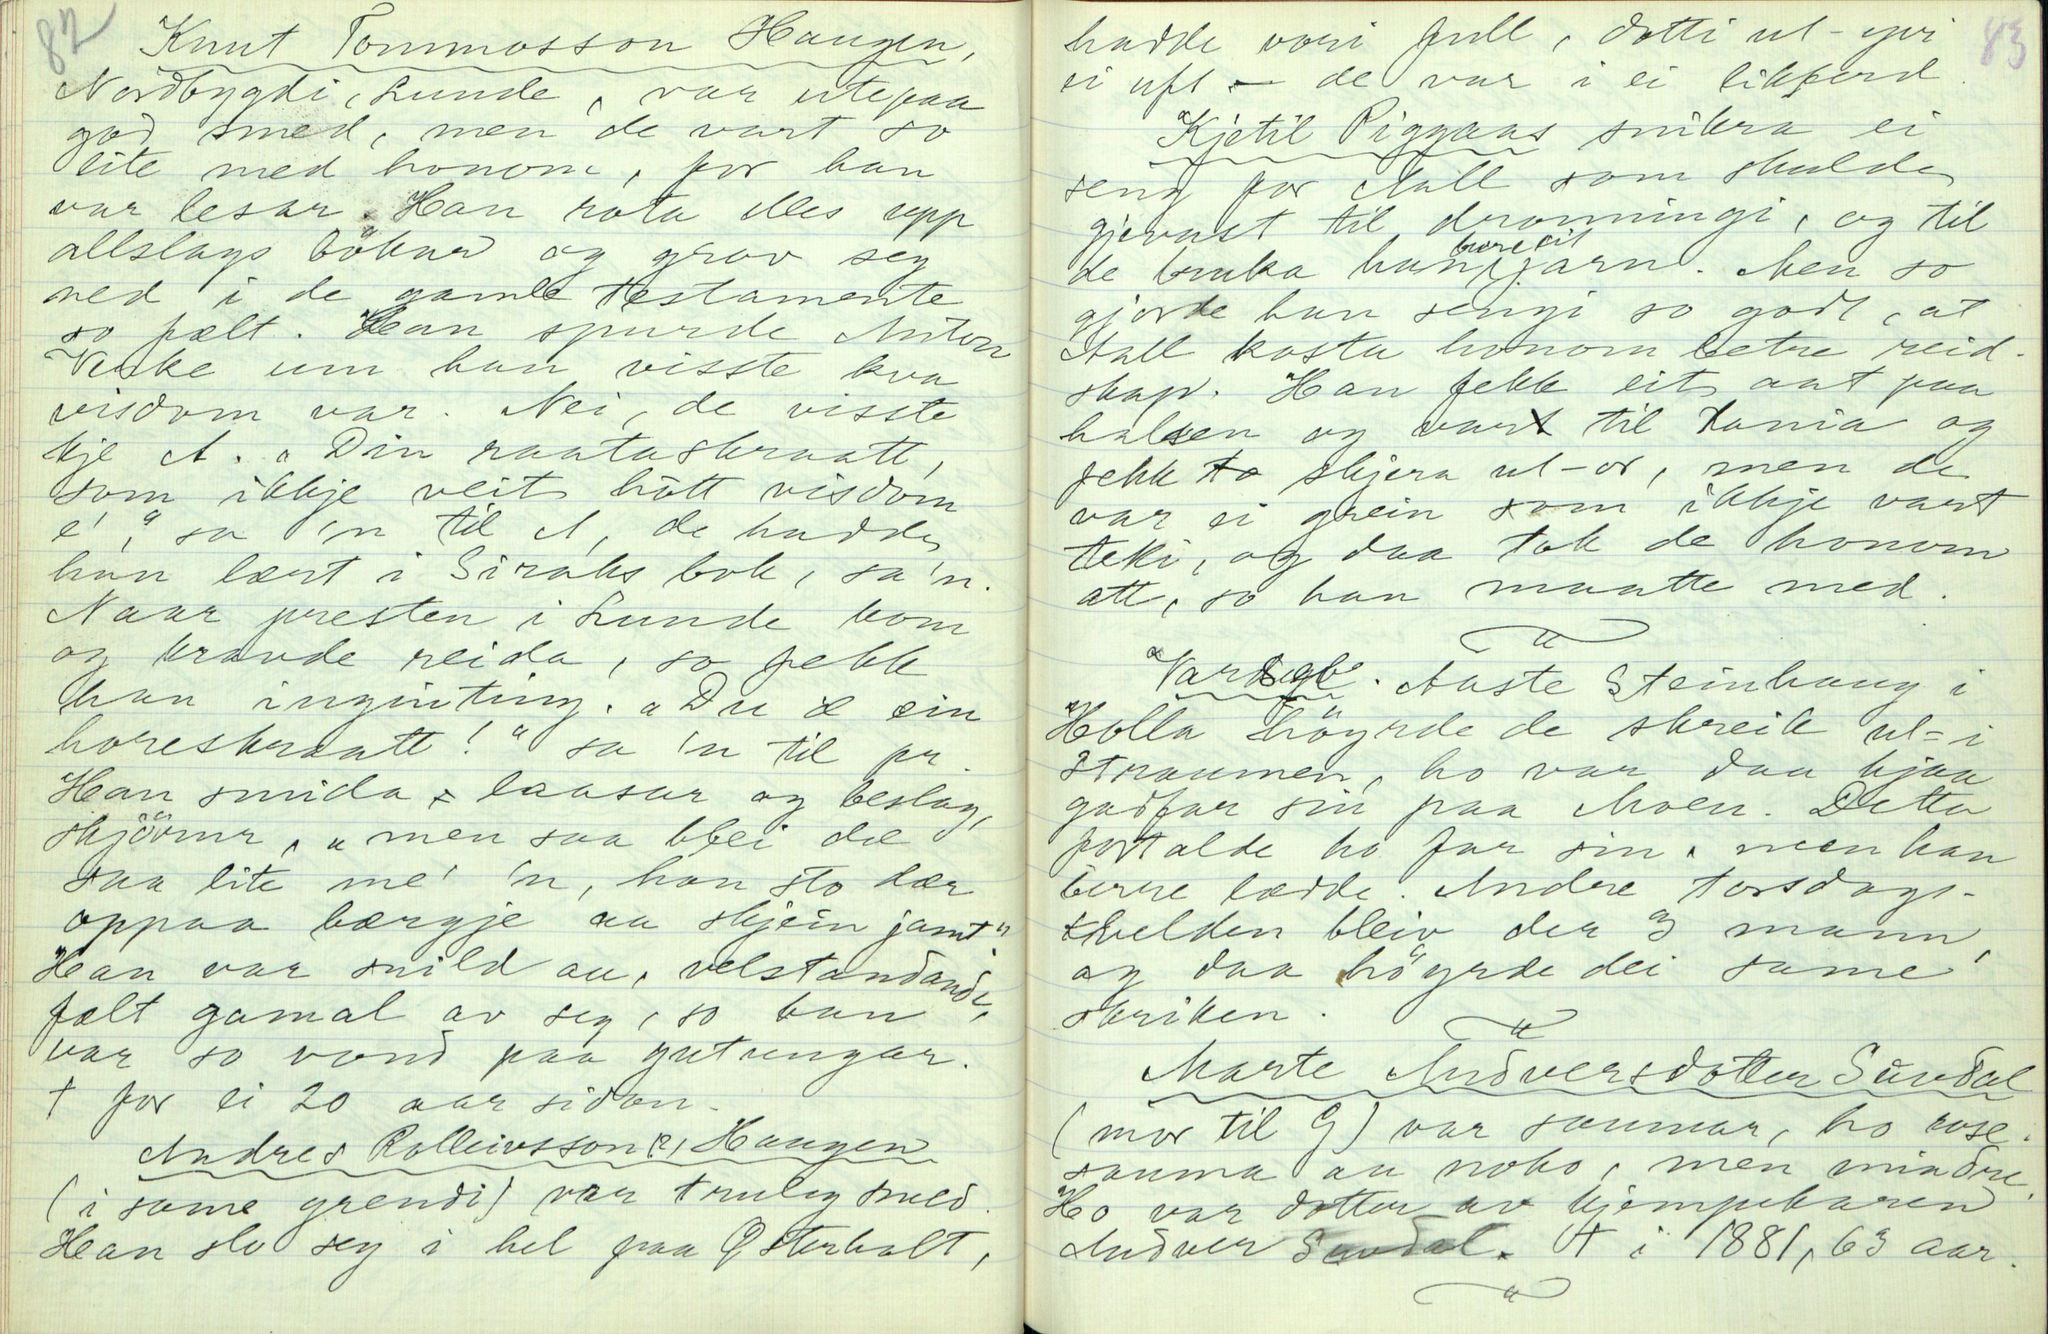 82
Knut Tommosson Haugen,
Nordbygdi, Lunde, var utepaa
god smed, men de vart so
lite med honom, for han
var lesar. Han rota alles upp
allslags bökar og grov seg
ned i de gamle testamente
so fælt. Han spurde Anton
um han visste kva
visdom var. Nei, de visste
kje A. „Din raataskraatt,
som ikkje veit hött visdom
e'," sa 'n til A, de hadde
han lært i Siraks bok, sa'n.
Naar presten i Lunde kom
og kravde reida, so fekk
han inginting. „Du æ ein
horeskraatt!" sa 'n til pr.
Han smida laasar og beslag,
skjörur, „men saa blei dæ
saa lite me' 'n, han sto dær
oppaa bærgje aa skjein jamt"
Han var snild au, velstandande,
fælt gamal av seg, so han
var so vond paa gutungar.
† for ei 20 aar sidan.
Andres Rolleivsson (?) Haugen
(i same grendi) var truleg smed.
Han slo seg i hel paa Østerholt,
83
hadde vori full, dotti ut-yvi
ei uft – de var i ei likferd.
Kjetil Piggaas snikra ei
seng for Aall som skulde
gjevast til dronningi, og til
de bruka han berre eit jarn. Men so
gjorde han sengi so godt, at
Aall kosta honom betre reid-
skap. Han fekk eit aat paa
halsen og vart til Kania og
fekk skjera ut-or, men de
var ei grein som ikkje vart
teki, og daa tok de honom
att, so han maatte med.
Vardogle. Aaste Steinhaug i
Holla höyrde de skreik ut-i
Straumen, ho var daa hjaa
godfar sin paa Moen. Detta
fortalde ho far sin, men han
berre lædde. Andre torsdags-
kvelden bleiv der 3 mann,
og daa höyrde dei same
skriken.
Marte Andversdotter Suvdal
(mor til G) var saumar, ho rose-
sauma au noko, men mindre.
Ho var dotter av kjempekaren
Andver Suvdal. † i 1881, 63 aar.